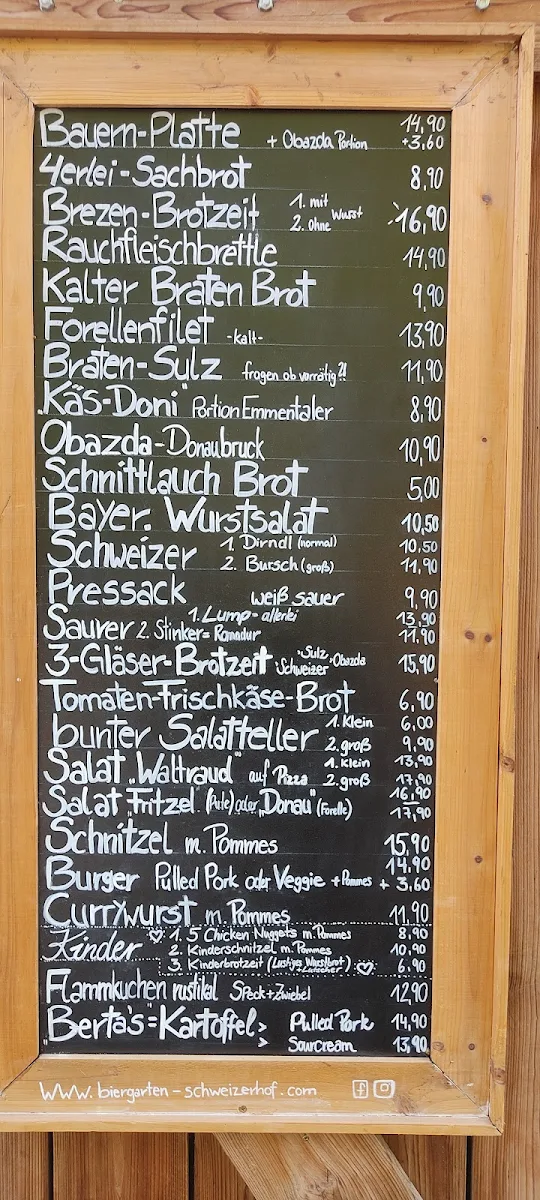 Bauern-Platte + Obazda Portion 14,90 +3,60
4erlei-Sachbrot 8,90
Brezen-Brotzeit 1. mit 2. ohne Wurst 16,90
Rauchfleischbrettle 14,90
Kalter Braten Brot 9,90
Forellenfilet -kalt- 13,90
Braten-Sulz fragen ob vorrätig?! 11,90
„Käs-Doni" Portion Emmentaler 8,90
Obazda-Donaubruck 10,90
Schnittlauch Brot 5,00
Bayer. Wurstsalat 10,50
Schweizer 1. Dirndl (normal) 10,50
2. Bursch (groß) 11,90
Pressack weiß sauer 9,90
Saurer 1. Lump = allerlei 13,90
2. Stinker = Romadur 11,90
3-Gläser-Brotzeit Sulz Schweizer Obazda 15,90
Tomaten-Frischkäse-Brot 6,90
bunter Salatteller 1. Klein 6,00
2. groß 9,90
Salat „Waltraud" auf Pizza 1. Klein 13,90
2. groß 17,90
Salat „Fritzel" (Pute) oder „Donau" (Forelle) 16,90
17,90
Schnitzel m. Pommes 15,90
Burger Pulled Pork oder Veggie 14,90
+ Pommes + 3,60
Currywurst m. Pommes 11,90
Kinder ♡ 1. 5 Chicken Nuggets m. Pommes 8,90
2. Kinderschnitzel m. Pommes 10,90
3. Kinderbrotzeit (Lustiges Wurstbrot + Lutscher) ♡ 6,90
Flammkuchen rustikal Speck + Zwiebel 12,90
„Berta's" Kartoffel > Pulled Pork 14,90
> Sourcream 13,90
www.biergarten-schweizerhof.com